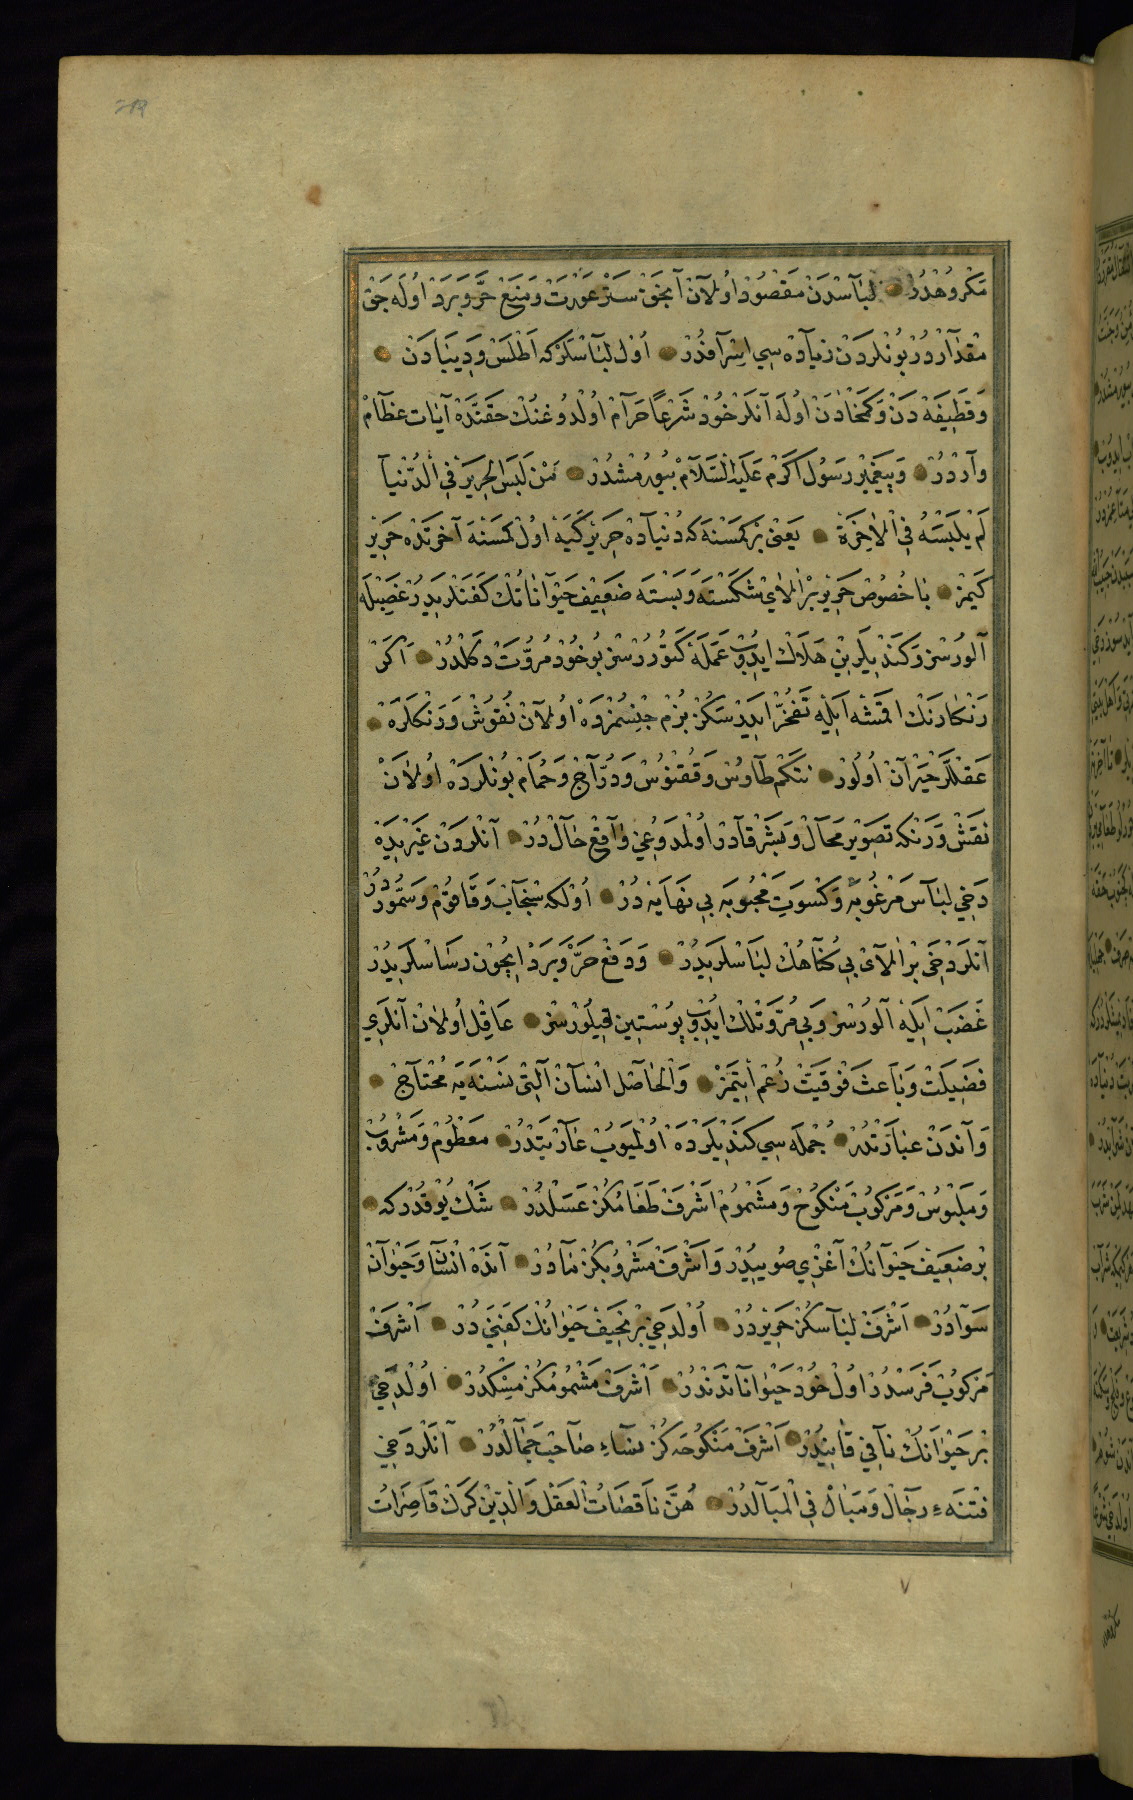 مكروهدر لباسدن مقصود اولان آنجق ستر عورت و منع حر و برد اوله جق
مقداردر بونلردن زياده سي اسرافدر اول لباسلركه اطلس و ديبادن
و قطيفه دن و كمخادن اوله آنلر خود شرعا حرام اولدوغنك حقنده آيات عظام
واردر و پيغمبر رسول اكرم عليه السلام بيورمشدر من لبس الحرير في الدنيا
لم يلبسه في الآخرة يعني بر كمسنه كه دنياده حرير كيه اول كمسنه آخرتده حرير
كيمز با خصوص حرير بر الاي شكسته و بسته ضعيف حيواناتك كفنلريدر غصبيله
آلورسز و كنديلرين هلاك ايدوب عمله كتوررسز بو خود مروت دكلدر اكر
رنكارنك اقمشه ايله تفخر ايدرسكز بزم جنسمزده اولان نقوش و رنكلره
عقللر حيران اولور نتكم طاوس و ققنوس و دراج و حمام بونلرده اولان
نقش و رنكه تصوير محال و بشر قادر اولمدوغي واقع حال در آنلردن غيريده
دخي لباس مرغوبه و كسوت محبوبه بي نهايه در اولكه سنجاب و قاقوم و سموردر
آنلر دخي بر الاي بي كناهك لباسلريدر و دفع حر و برد ايچون رساسلريدر
غضب ايله آلورسز و بي مروتلك ايدوب پوستين قيلورسز عاقل اولان آنلري
فضيلت و باعث فوقيت زعم ايتمز والحاصل انسان آلتي نسنه يه محتاج
و آندن عبارتدر جمله سي كنديلرده اولميوب عاريتدر مطعوم و مشروب
و ملبوس و مركوب منكوح و مشموم اشرف طعامكز عسلدر شك يوقدركه
بر ضعيف حيوانك آغزي صوييدر و اشرف مشروبكز مادر آنده انسان و حيوان
سوادر اشرف لباسكز حريردر اولدخي بر نحيف حيوانك كفني در اشرف
مركوب فرسدر اول خود حيواناتدندر اشرف مشمومكز مسكدر اولدخي
بر حيوانك نافي قانيدر اشرف منكوحه كز نساء صاحب جمالدر آنلر دخي
فتنهء رجال و مبال في المبالدر هن ناقصات العقل والدين كرك قاصرات